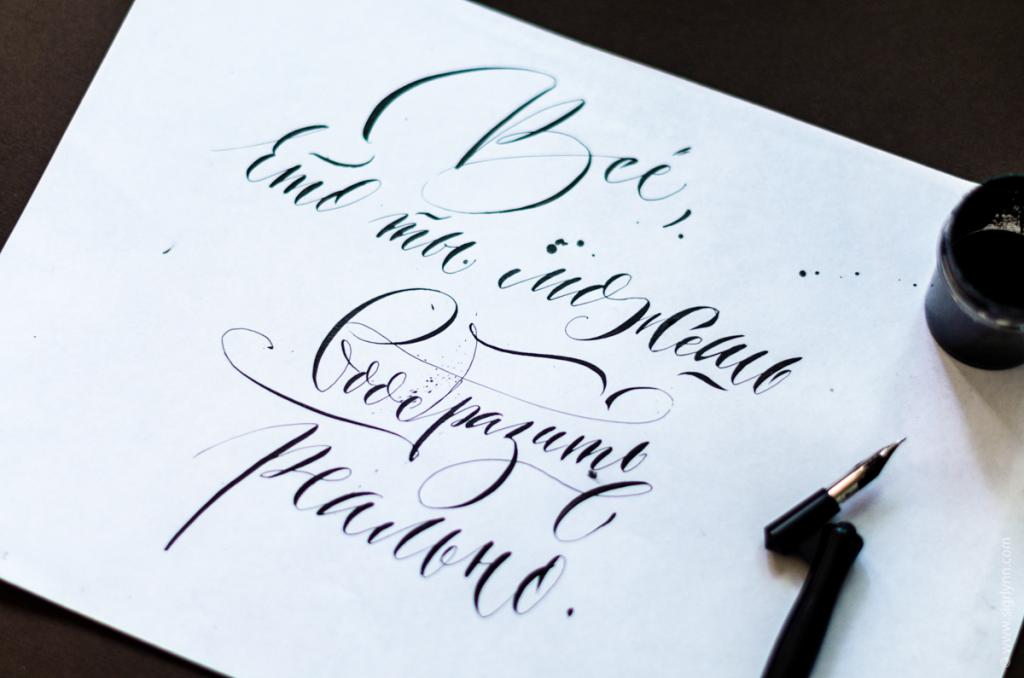 Всё,
что ты можешь
вообразить –
реально.
© www.sigrlynn.com